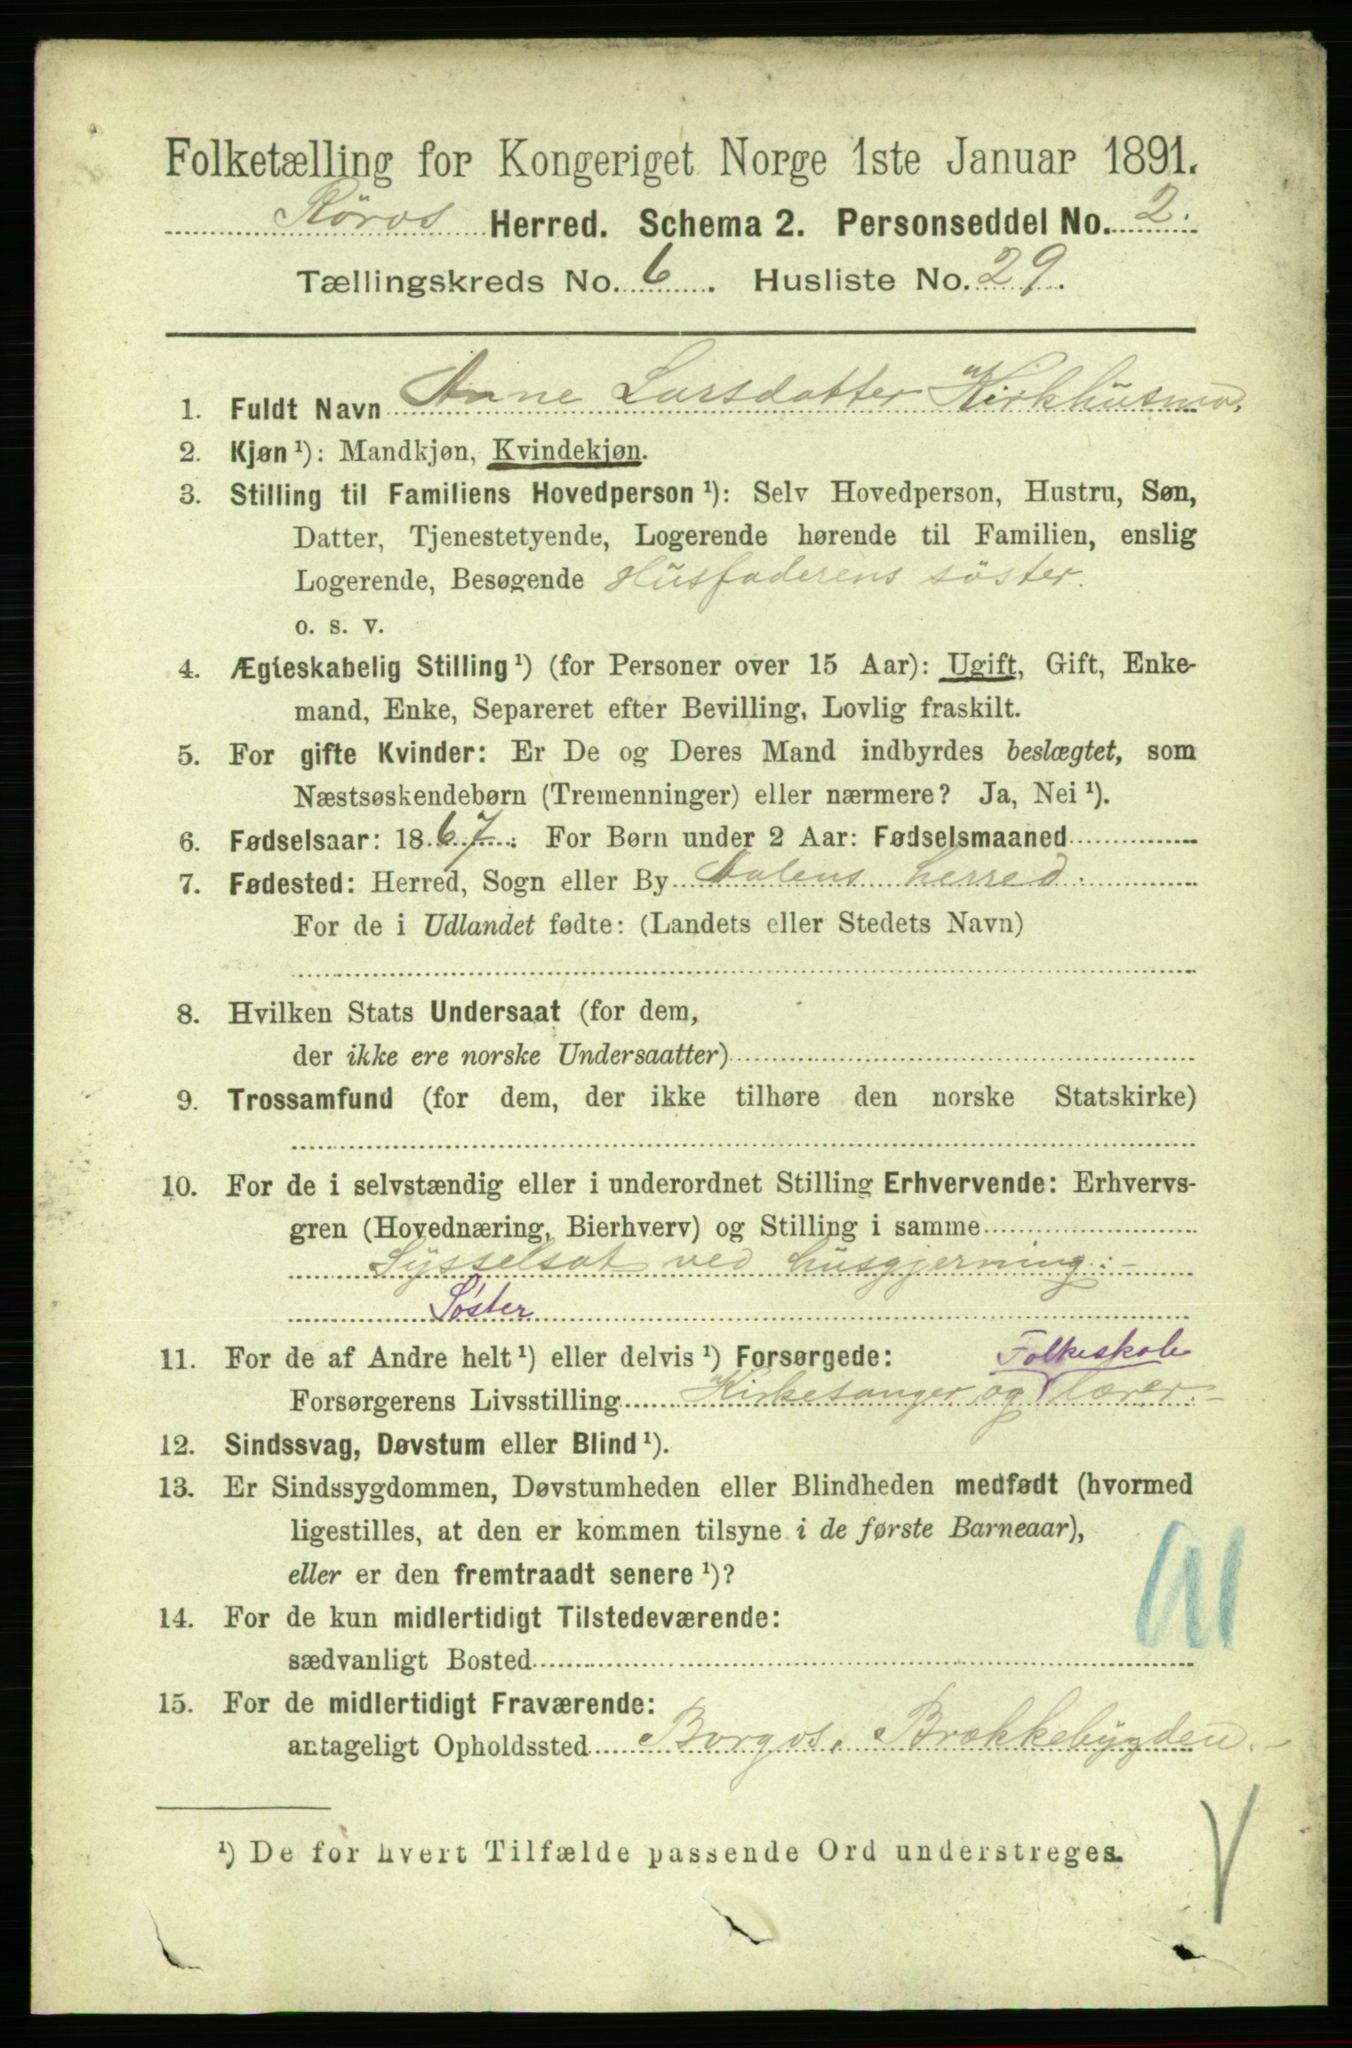 Folketælling for Kongeriget Norge 1ste Januar 1891.
Röros Herred. Schema 2. Personseddel No. 2.
Tællingskreds No. 6. Husliste No. 29.
1. Fuldt Navn Anne Larsdatter Kirkhusmo.
2. Kjøn ¹): Mandkjøn, Kvindekjøn.
3. Stilling til Familiens Hovedperson ¹): Selv Hovedperson, Hustru, Søn,
Datter, Tjenestetyende, Logerende hørende til Familien, enslig
Logerende, Besøgende Husfaderens söster.
o. s. v.
4. Ægteskabelig Stilling ¹) (for Personer over 15 Aar): Ugift, Gift, Enke-
mand, Enke, Separeret efter Bevilling, Lovlig fraskilt.
5. For gifte Kvinder: Er De og Deres Mand indbyrdes beslægtet, som
Næstsøskendebørn (Tremenninger) eller nærmere? Ja, Nei ¹).
6. Fødselsaar: 1867. For Børn under 2 Aar: Fødselsmaaned
7. Fødested: Herred, Sogn eller By Aalens herred.
For de i Udlandet fødte: (Landets eller Stedets Navn)
8. Hvilken Stats Undersaat (for dem,
der ikke ere norske Undersaatter)
9. Trossamfund (for dem, der ikke tilhøre den norske Statskirke)
10. For de i selvstændig eller i underordnet Stilling Erhvervende: Erhvervs-
gren (Hovednæring, Bierhverv) og Stilling i samme
Sysselsat ved husgjerning:-
Söster
11. For de af Andre helt ¹) eller delvis ¹) Forsørgede: Folkeskole
Forsørgerens Livsstilling Kirkesanger og lærer.-
12. Sindssvag, Døvstum eller Blind ¹).
13. Er Sindssygdommen, Døvstumheden eller Blindheden medfødt (hvormed
ligestilles, at den er kommen tilsyne i de første Barneaar),
eller er den fremtraadt senere ¹)?
14. For de kun midlertidigt Tilstedeværende:
sædvanligt Bosted
15. For de midlertidigt Fraværende:
antageligt Opholdssted Borgos, Brækkebygden.-
¹) De for hvert Tilfælde passende Ord understreges.